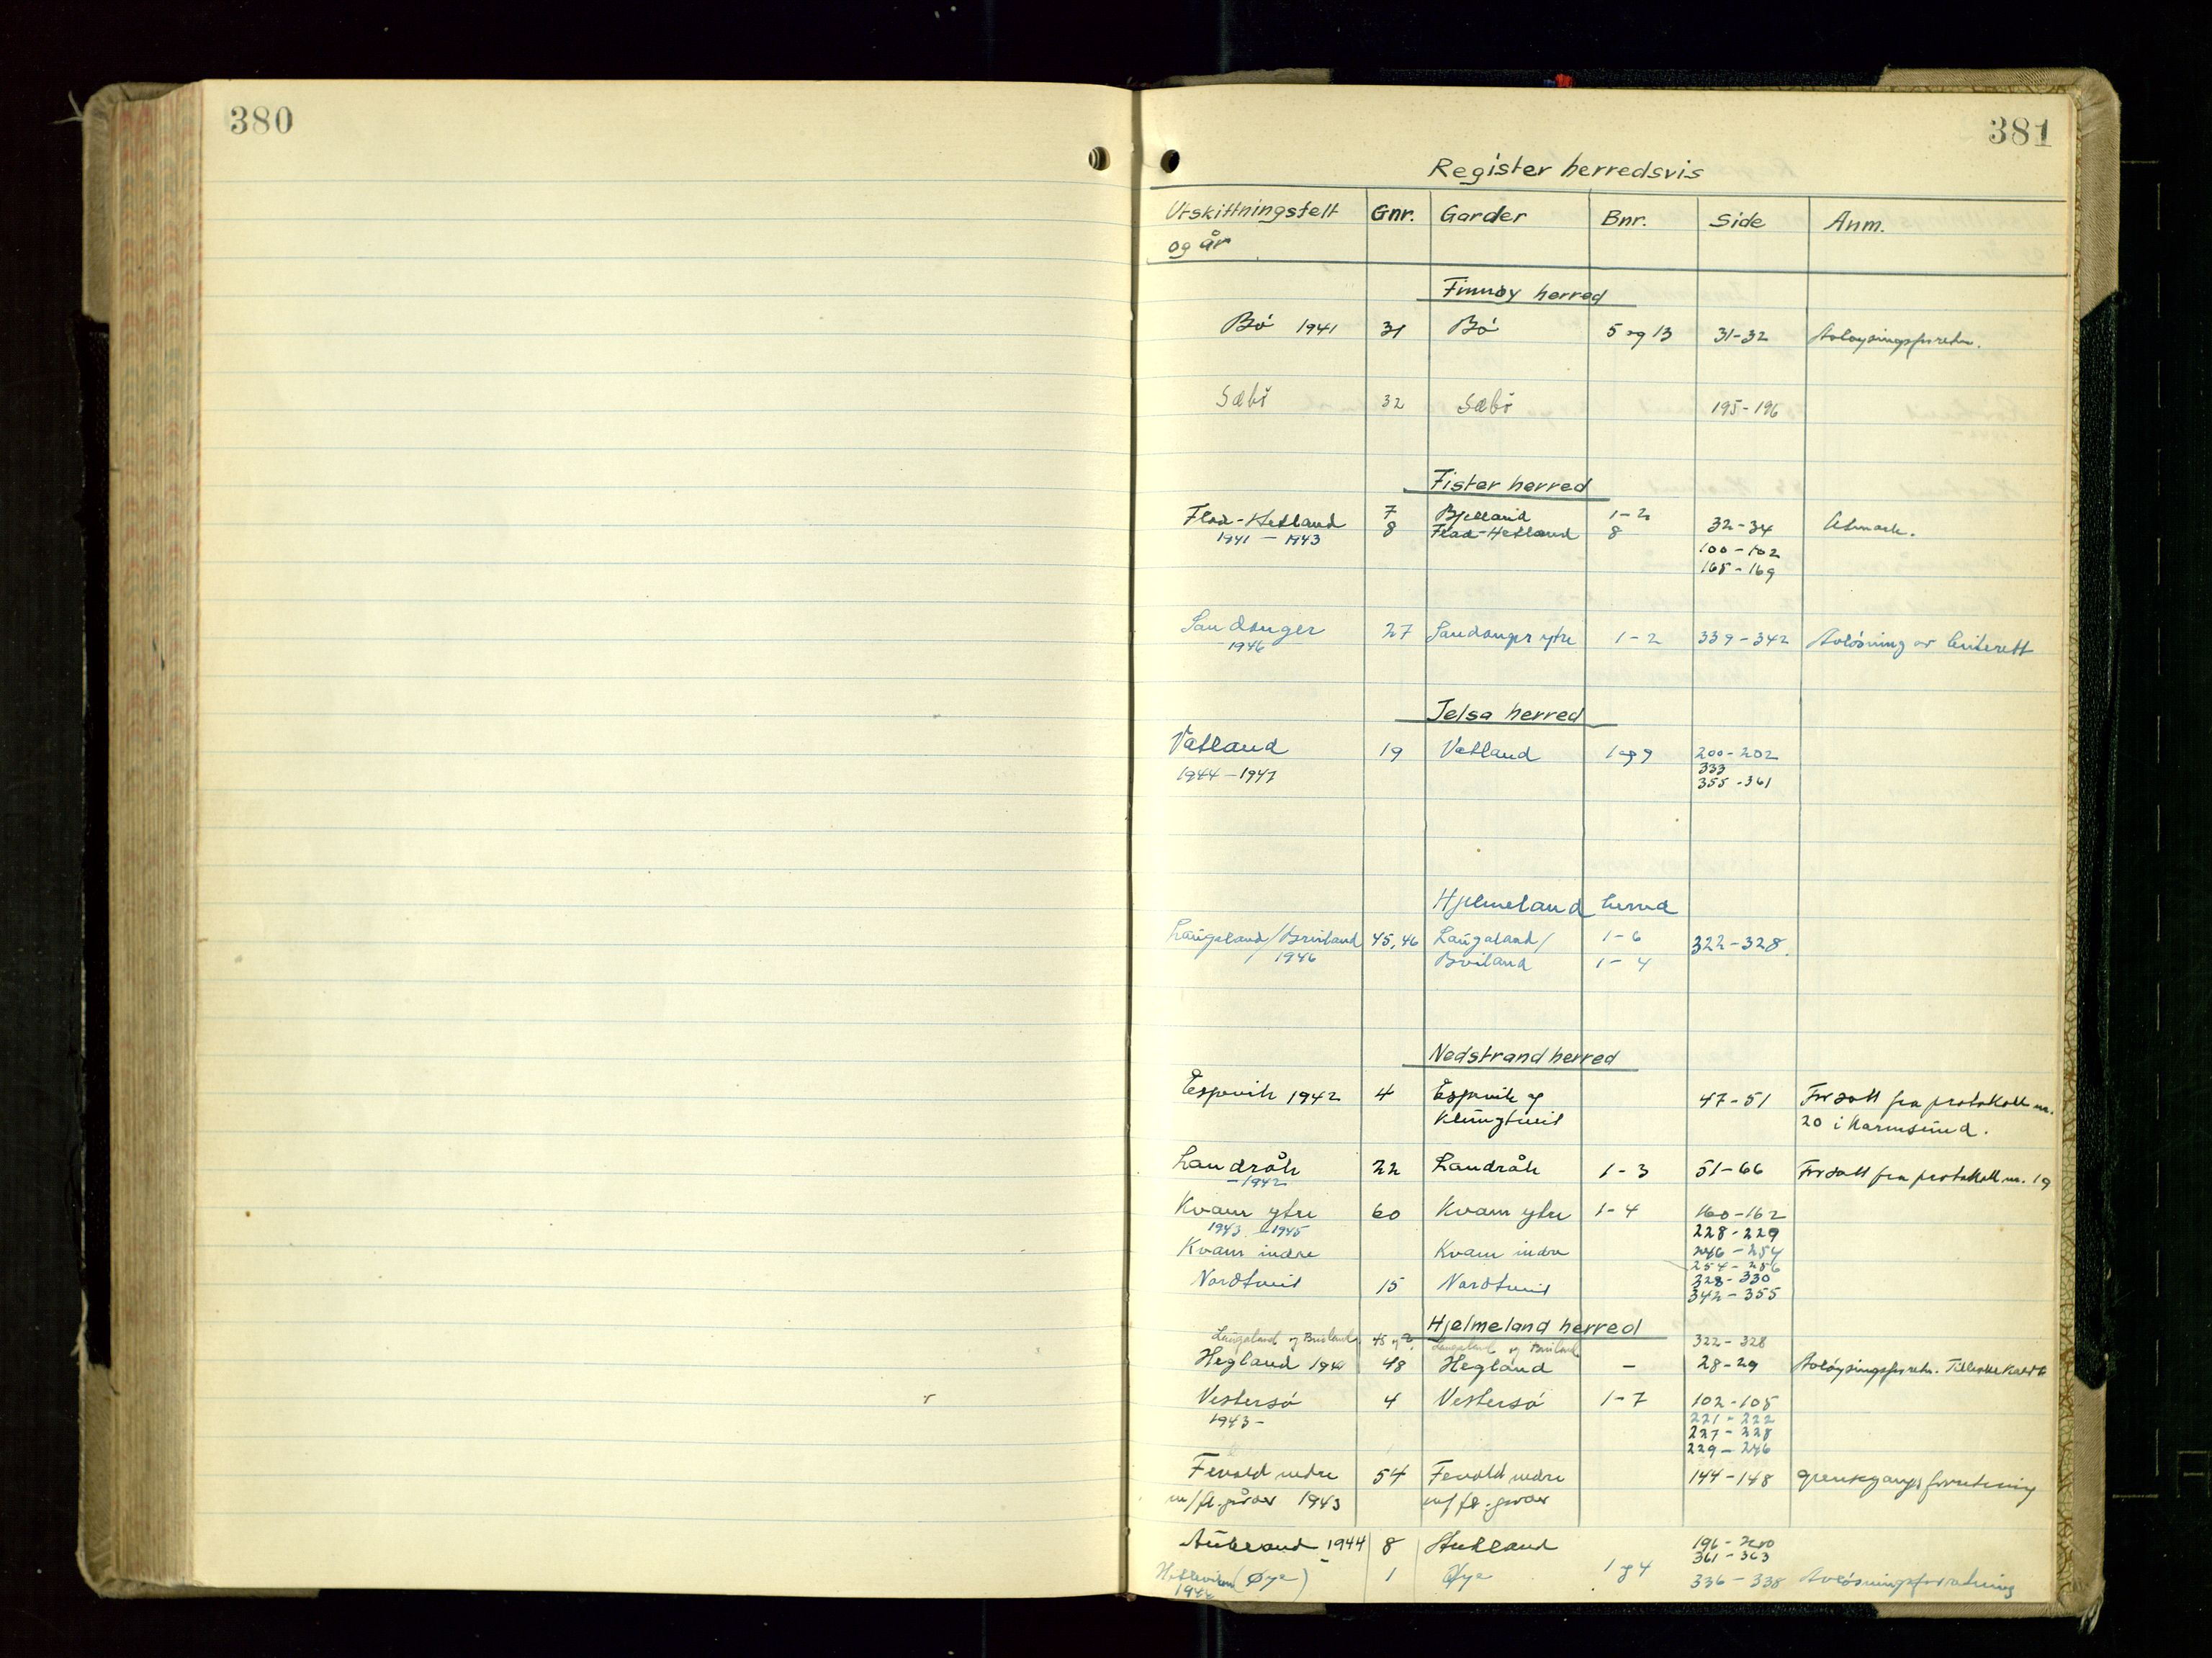 380
381
Register herredsvis
Utskiftningsfelt Gnr. Garder Bnr. Side Anm.
og år
Finnøy herred
Bø 1941 31 Bø 5 og 13 31-32 Avløysingsforretn.
Sæbø 32 Sæbø 195-196
Fister herred
Flad-Hetland 7 Bjelland 1-2 32-34 Utmark.
1941 - 1943 8 Flad-Hetland 8
100-102
168-169
Sandanger 27 Sandanger ytre 1-2 339-342 Avløsning av beiterett
1946
Jelsa herred
Vatland 19 Vatland 1 og 9 200-202
1944-1947 333
355-361
Hjelmeland herred
Laugaland/Breiland 45, 46 Laugaland/ 1-6 322-328.
1946 Breiland 1-4
Nedstrand herred
Espevik 1942 4 Espevik og 47-51 Forsatt fra protokoll nr.
Klungtveit 20 i Karmsund.
Landråk 22 Landråk 1-3 51-66 Forsatt fra protokoll nr. 19
-1942
Kvam ytre 60 Kvam ytre 1-4 160-162
1943 - 1945 228-229
Kvam indre Kvam indre 246-254
254-256
Nordtveit 15 Nordtveit 328-330
342-355
Hjelmeland herred
Laugaland og Breiland 45 og Laugaland og Breiland 322-328
Hegland 1941 48 Hegland - 28-29 Avløysingsforretn.
Vestersø 4 Vestersø 1-7 102-108
1943- 221-222
227-228
229-246
Fevold indre 54 Fevold indre 144-148 Grensegangsforretning
m/fl. gårder 1943 m/fl. garder
1944 8 196-200
361-363
(Øye) 1 Øye 1 og 4 336-338 Avløsningsforretning
1946